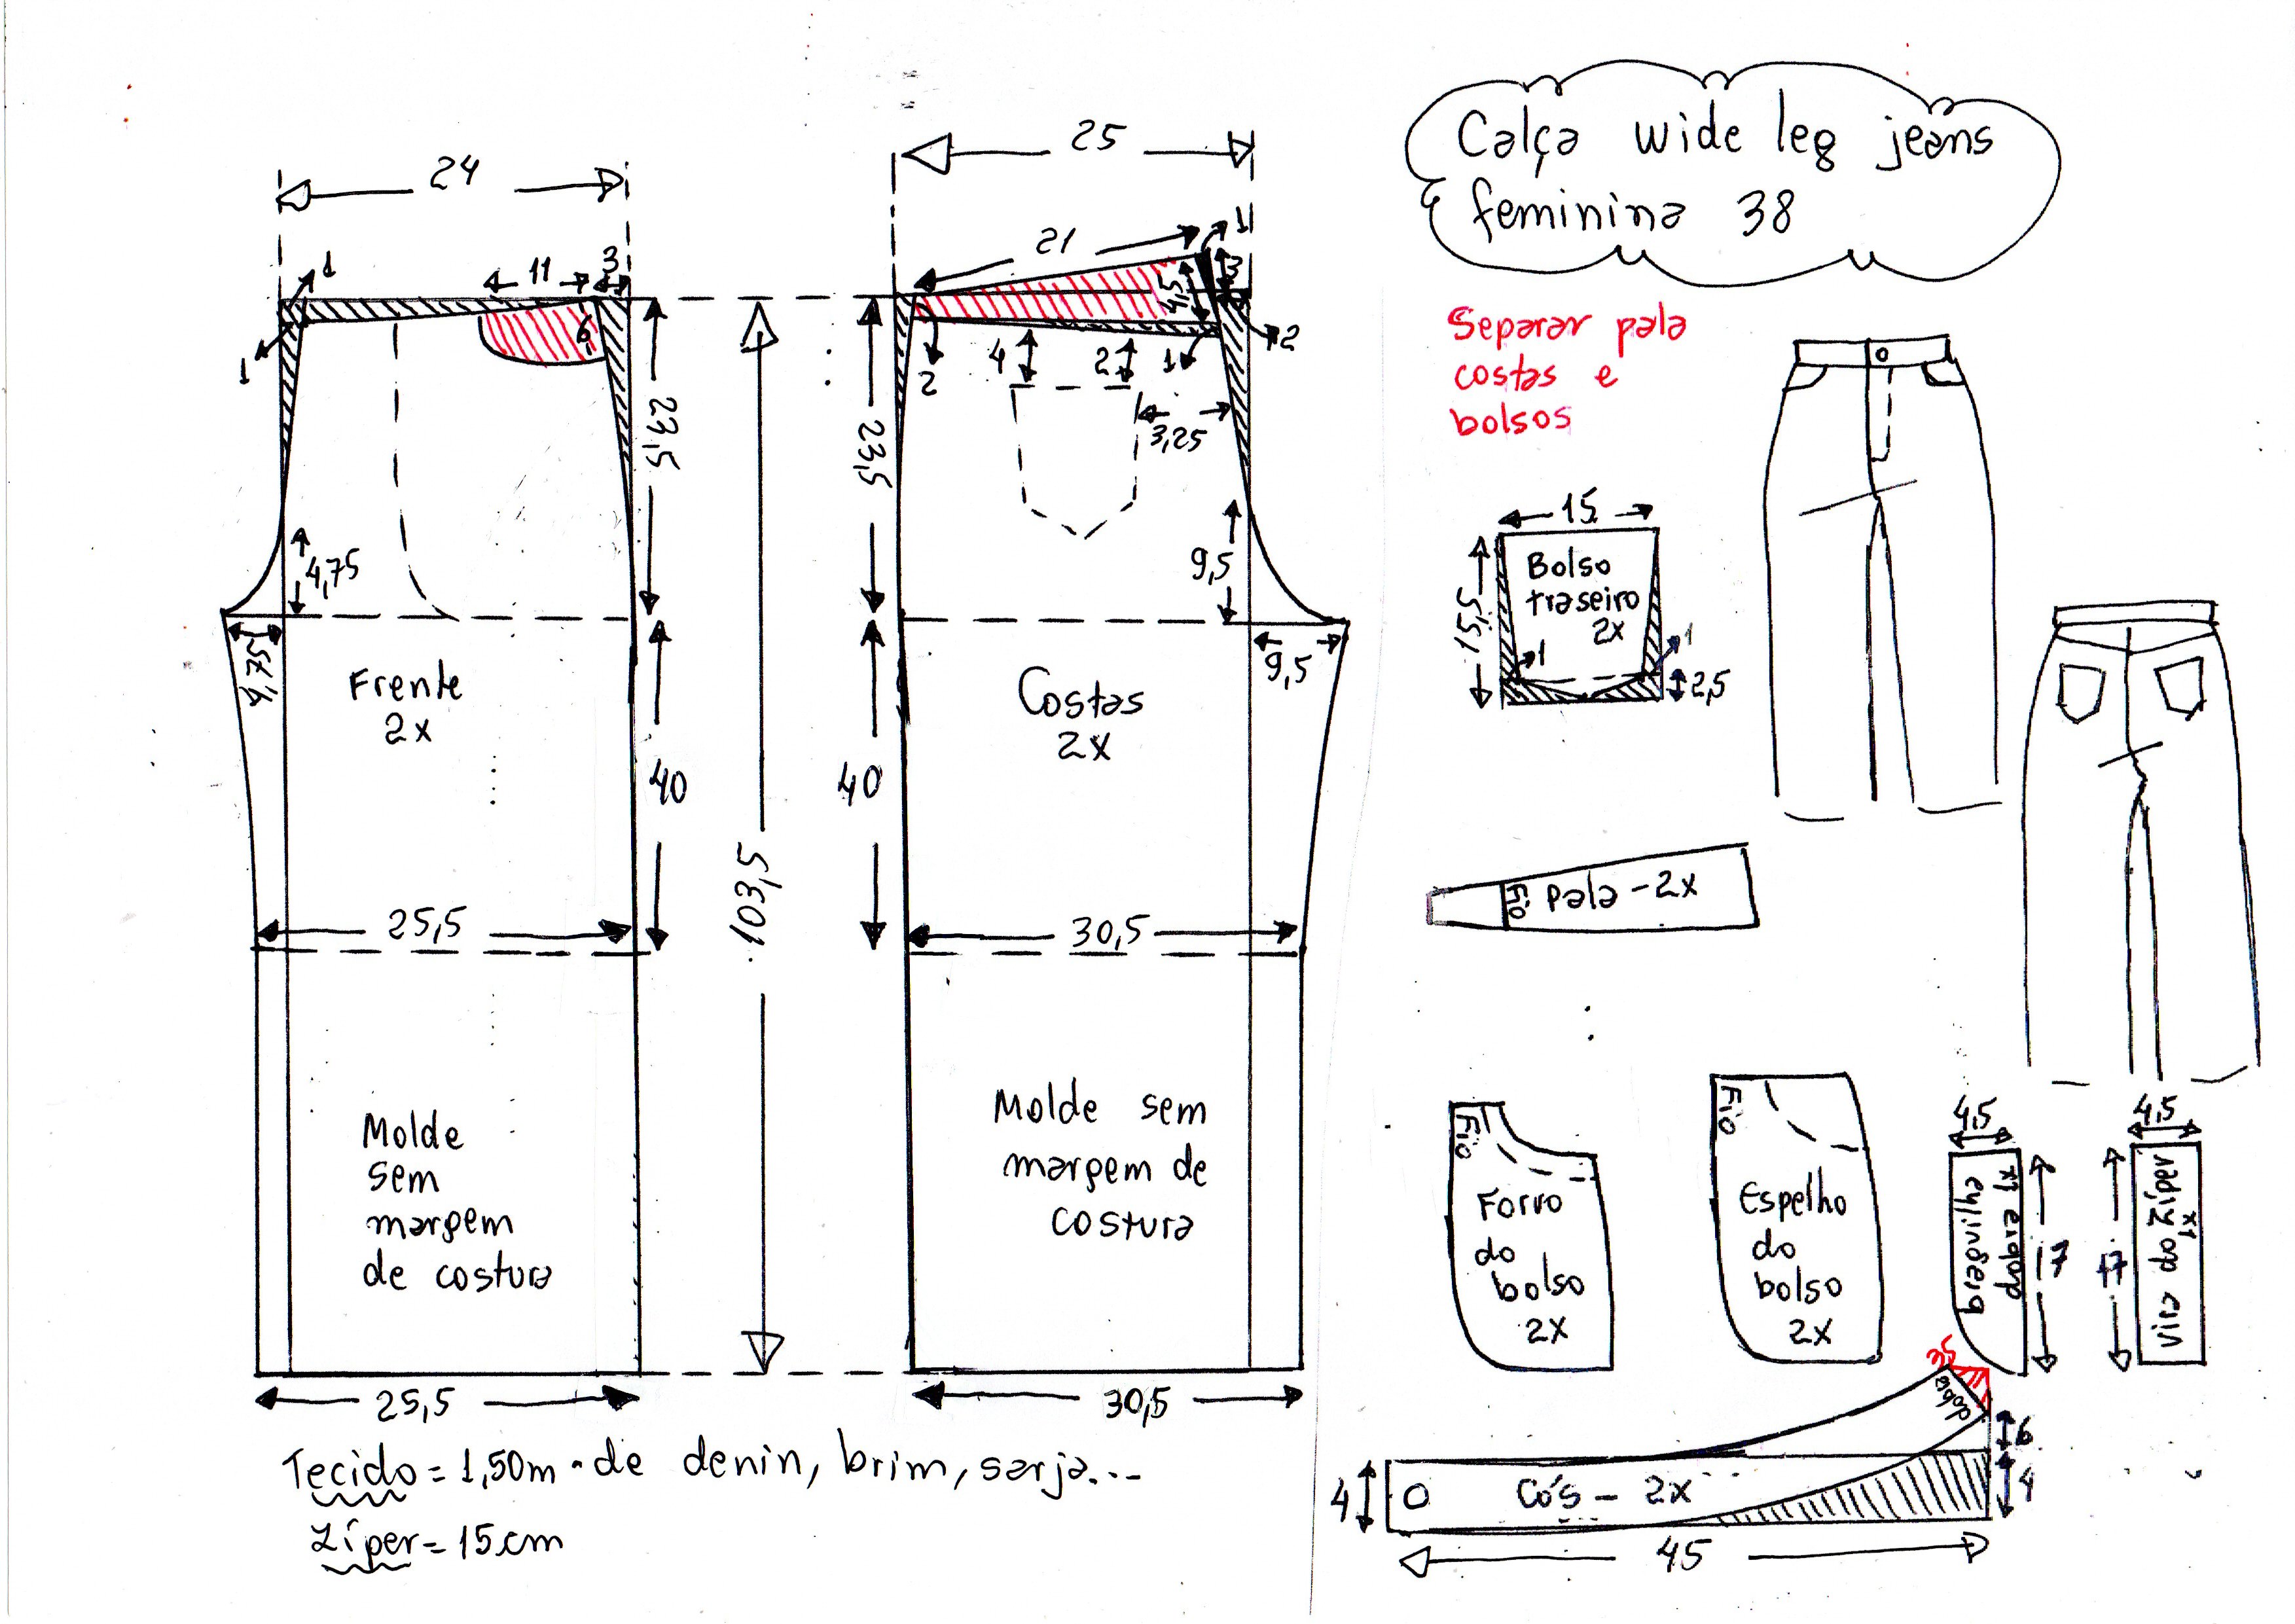 Calça wide leg jeans
feminina 38
24
25
1
11
3
6
1
23,5
4,75
4,75
Frente
2x
40
25,5
Molde
sem
margem
de costura
25,5
103,5
21
1
3
4,5
2
4
2
1
2
3,25
23,5
9,5
9,5
Costas
2x
40
30,5
Molde sem
margem de
costura
30,5
Separar pala
costas e
bolsos
15
15,5
Bolso
traseiro
2x
1
1
2,5
Fio
Pala - 2x
Fio
Forro
do
bolso
2x
Fio
Espelho
do
bolso
2x
4,5
braguilha
dobra 1x
17
4,5
17
vira do zíper
1x
3,5
dobra
6
4
4
Cós - 2x
45
Tecido = 1,50m de denin, brim, sarja...
Zíper = 15cm